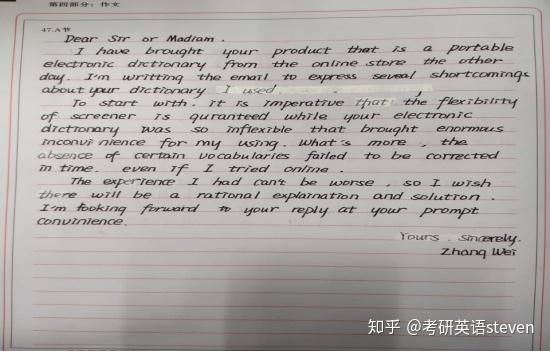 第四部分：作文
47.A节
Dear Sir or Madiam.
I have brought your product that is a portable
electronic dictionary from the online store the other
day. I'm writting the email to express seveal shortcomings
about your dictionary I used.
To start with. it is imperative that the flexibility
of screener is quranteed while your electronic
dictronary was so inflexible that brought enormous
inconvinience for my using. What's more, the
absence of certain vocabularies failed to be corrected
in time. even if I tried online.
The experience I had can't be worse, so I wish
there will be a rational explaination and solution.
I'm fooking forward to your reply at your prompt
convinience.
Yours. Sincerely.
Zhang Wei
知乎 @考研英语steven